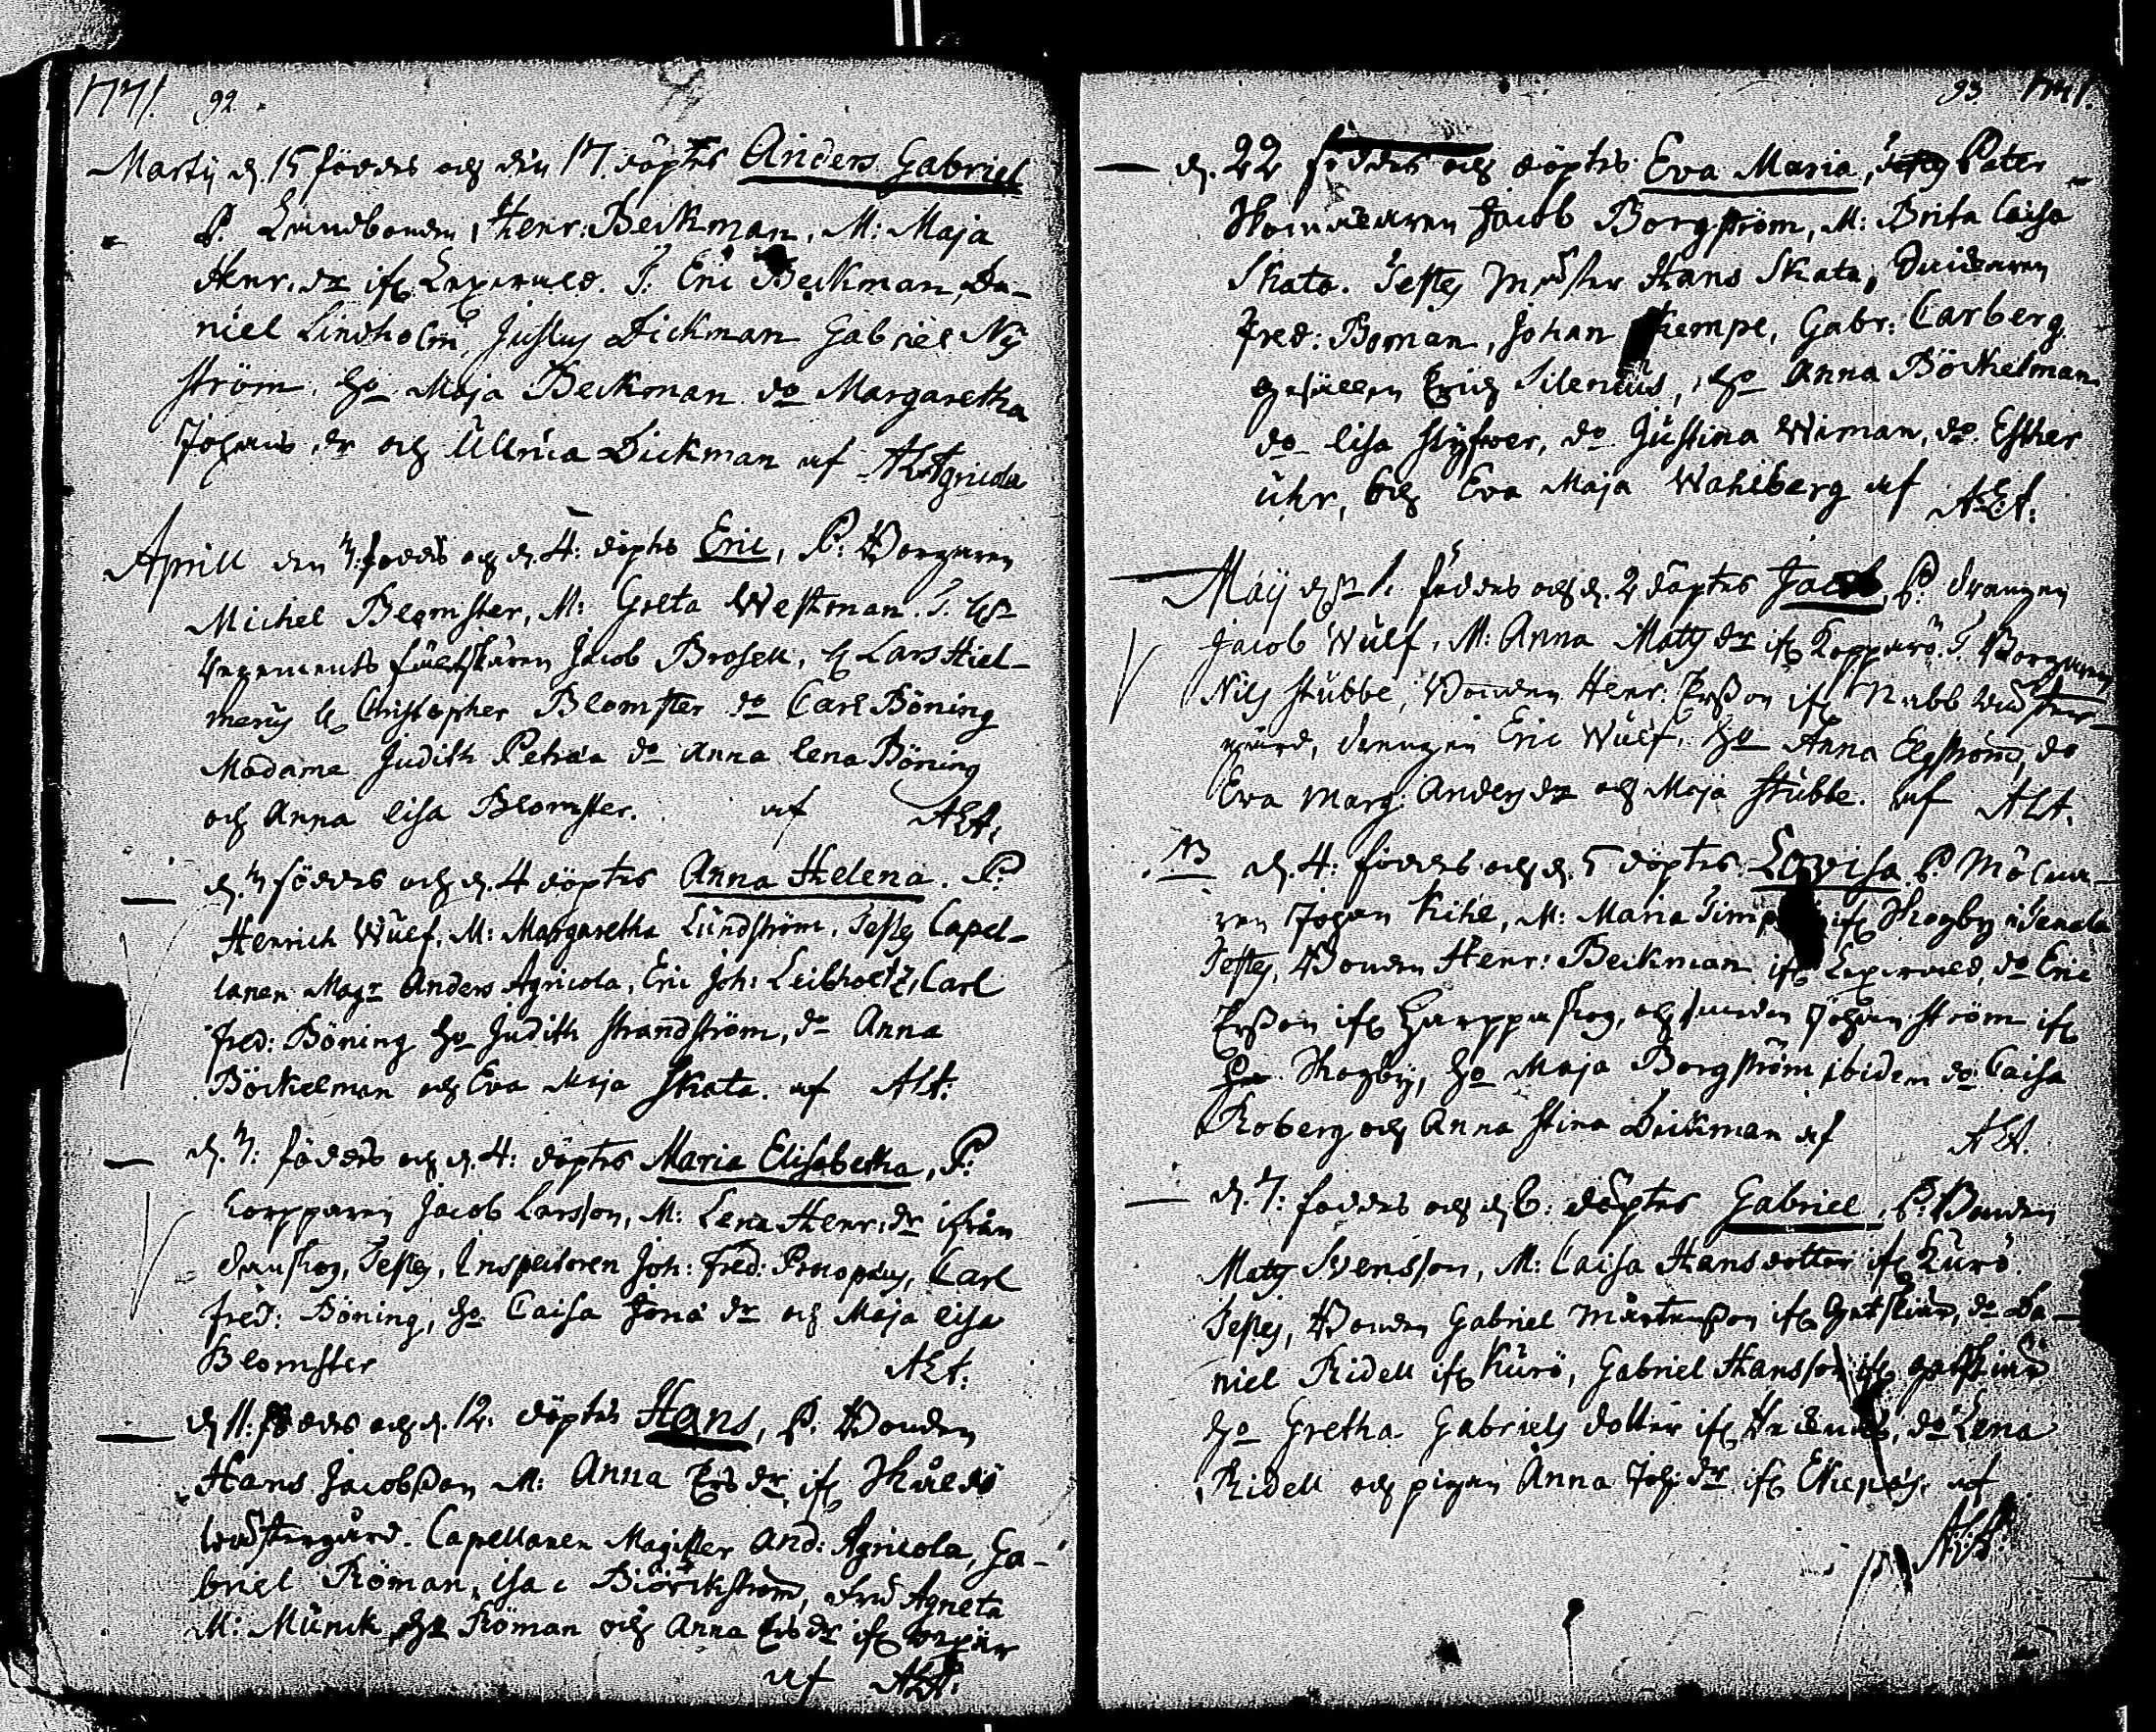 1741. 92.
Martij d. 15 föddes och den 17. döptes Anders Gabriel
P. Landbonden, Henr: Beckman, M: Maja
Henr. dr ifr. T: Eric Beckman, Da-
niel Lindholm, Justus Dickman Gabriel Ny
ström. Hu Maja Beckman do Margaretha
Johans dr och Ullrica Dickman af ALAgricola
Aprill den 3. föddes och d. 4: döptes Eric, P: Borgaren
Michel Blomster, M: Greta Westman. T.
regements fältskären Jacob Brosell, H Lars Hiel-
merus H Christopher Blomster do Carl Böning
Madame Judith Petræa do Anna Lena Böning
och Anna Lisa Blomster. af ALA.
d. 3 föddes och d. 4 döptes Anna Helena. P:
Henrich Wulf, M: Margaretha Lundström, Testes Capel-
lanen Magr Anders Agricola, Eric Joh: Leibholtz, Carl
Fred: Böning Hu Judith Strandström, do Anna
Böckelman och Eva Maja Skata. af ALA.
d. 3: föddes och d. 4: döptes Maria Elisabetha, P:
Jacob Larsson, M: Lena Henr: dr ifrån
Testes, Inspectoren Joh: Fred: Carl
Fred: Böning, Hu Caisa Jona dr och Maja Lisa
Blomster ALA.
d. 11: föddes och d. 12. döptes Hans, P: Bonden
Hans Jacobsson M: Anna Ers dr, ifr
wästergård. Capellanen Magister And: Agricola, Ga-
briel Röman, Isac Biörckström, Fru Agneta
M: Munck, Hu Röman och Anna Ers dr ifr
af ALA.
93. 1741.
d. 22 föddes och döptes Eva Maria, Pater
Jacob Borgström, M: Brita Caisa
Skata. Testes Mäster Hans Skata,
Fred: Boman, Johan Kempe, Gabr: Carberg
gesällen Erich Silenius, Hu Anna Böckelman
do Lisa Styfwer, do Justina Wiman, do Esther
Uhr, och Eva Maja Wahlberg af ALA.
Maij d. 1. föddes och d. 2 döptes Jacob, P: drengen
Jacob Wulf, M: Anna Mats dr ifr Kopparö. T. Borgaren
Nils Stubbe, Bonden Henr: Ersson ifr wäster-
gård, drengen Eric Wulf, Hu Anna Elgström, do
Eva Marg: Anders dr och Maja Stubbe. af ALA.
NB d. 4: föddes och d. 5 döptes Lovisa P. Mölna-
ren Johan Kihl, M: Maria ifr Skogby i Tenala
Testes, Bonden Henr: Beckman ifr do Eric
Ersson ifr Harpparskog, och Johan Ström ifr
Skogby, Hu Maja Borgström ibidem do Caisa
Roberg och Anna Stina Dickman af ALA.
d. 7: föddes och d. döptes Gabriel, P. Bonden
Mats Svensson, M: Caisa Hansdotter ifr Kurö.
Testes, Bonden Gabriel Mårtensson ifr do Da-
niel Ridell ifr Kurö, Gabriel Hansson ifr
Hu Gretha Gabriels dotter ifr do Lena
Ridell och pigan Anna Joh: dr ifr Ekenäs. af
ALA.